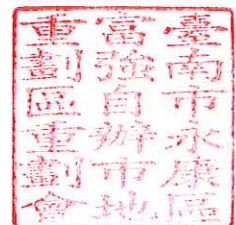 臺南市永康區
富強自辦市地
重劃區重劃會